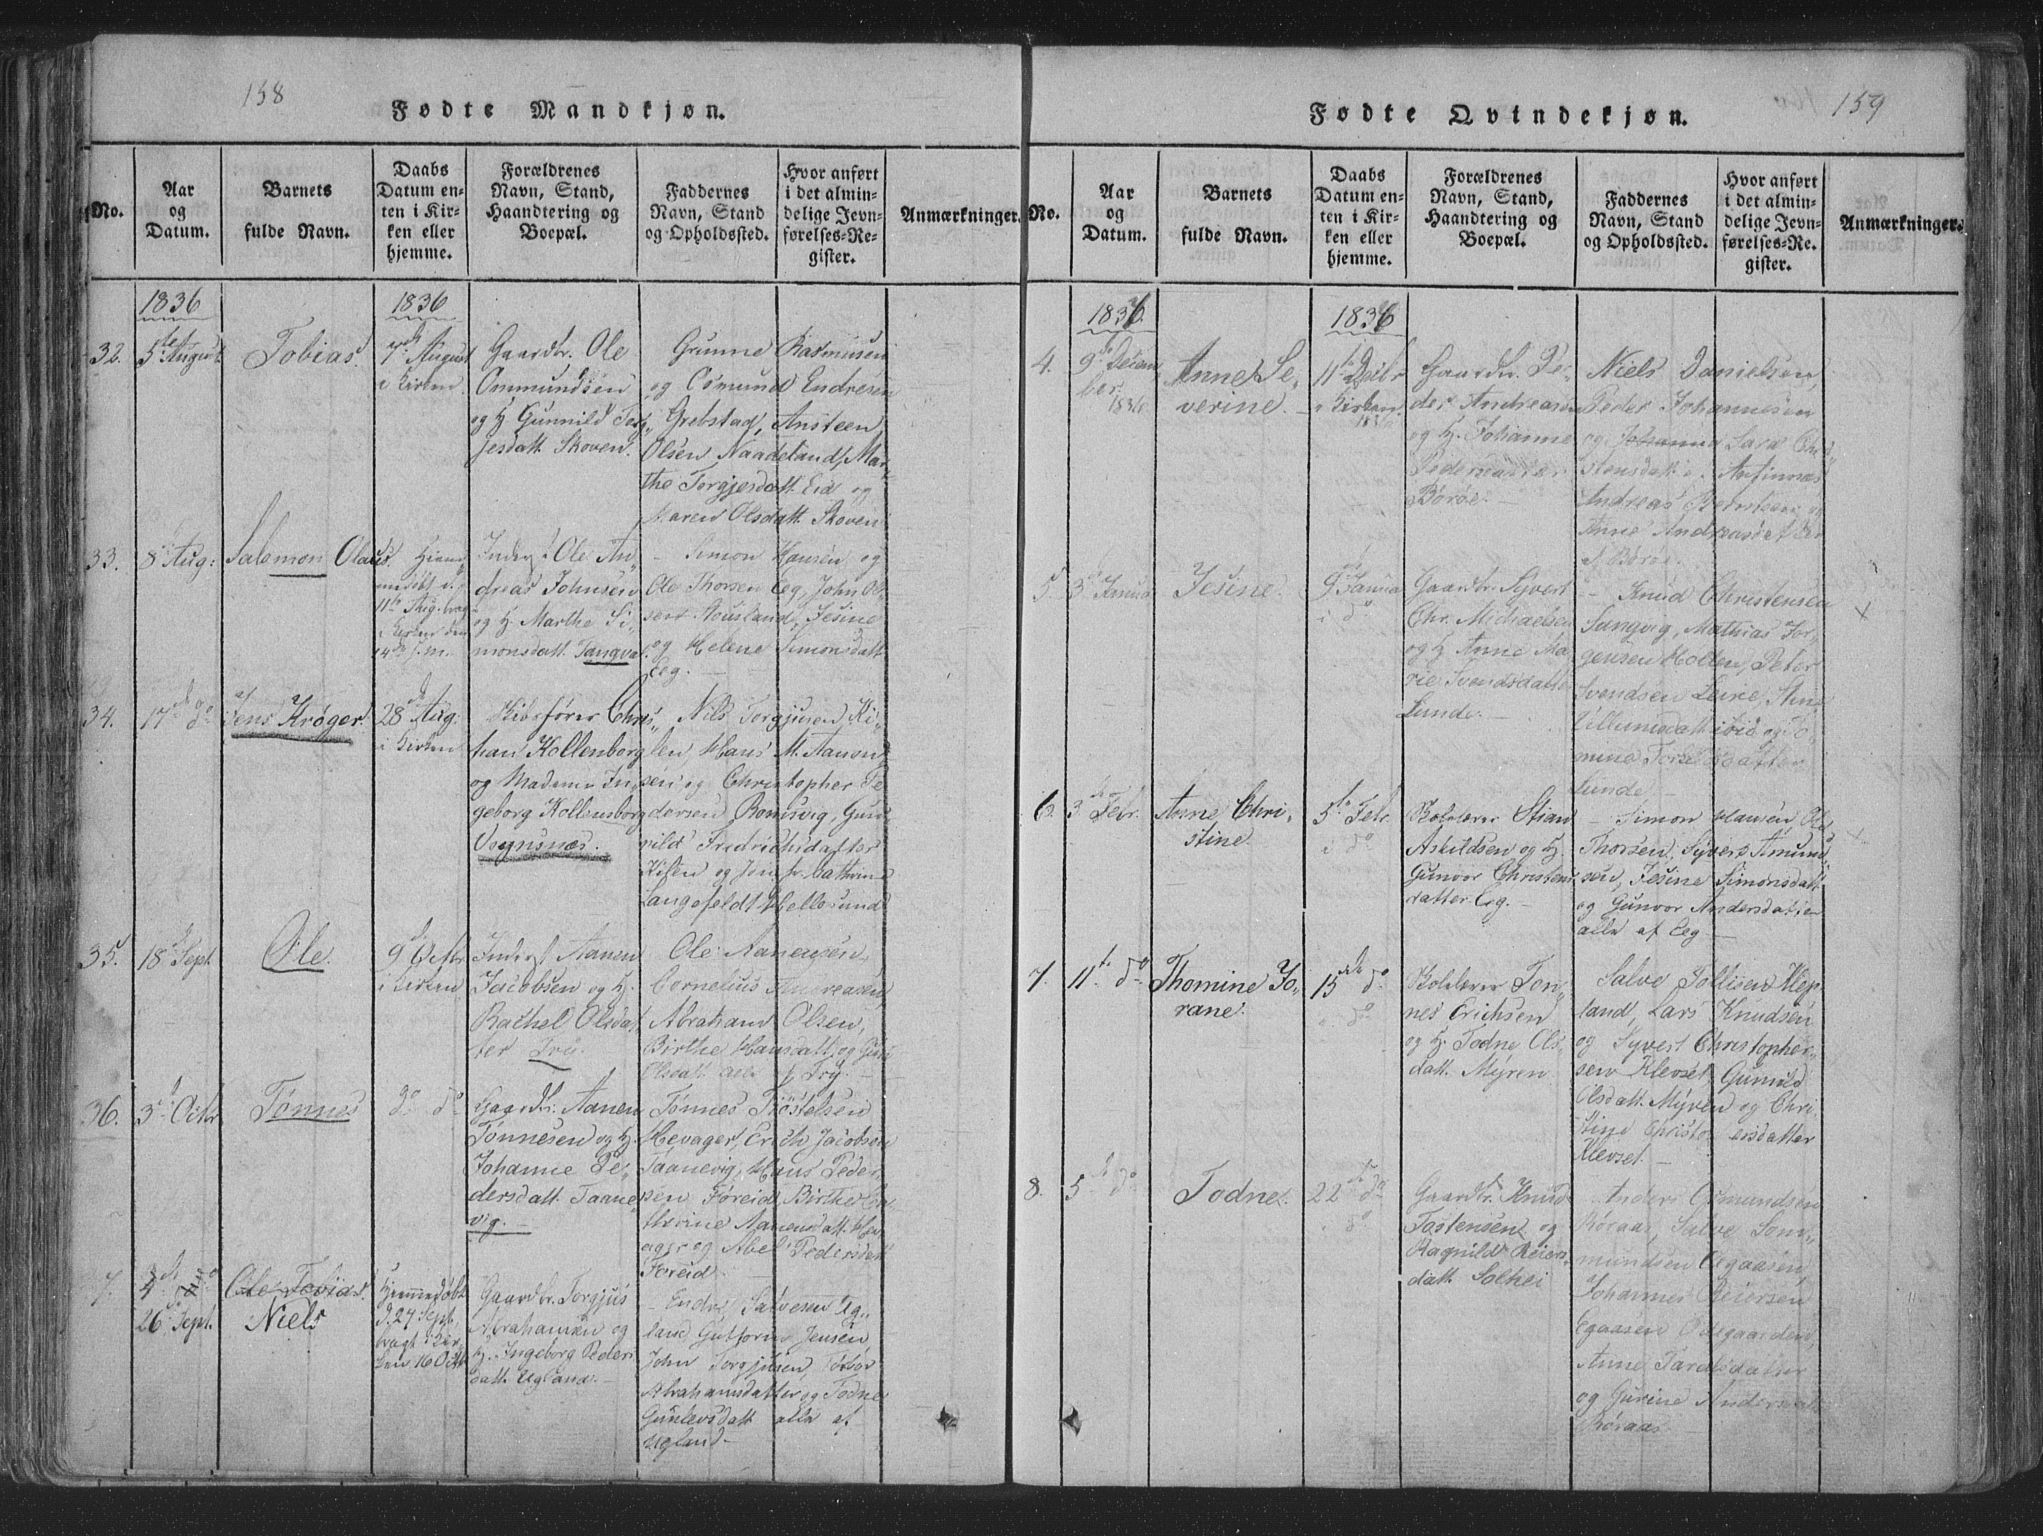 158
Fødte Mandkjøn.
No.
Aar
og
Datum.
Barnets
fulde Navn.
Daabs
Datum en-
ten i Kir-
ken eller
hjemme.
Forældrenes
Navn, Stand,
Haandtering og
Boepæl.
Faddernes
Navn, Stand
og Opholdssted.
Hvor anført
i det almin-
delige Jevn-
førelses-Re-
gister.
Anmærkninger.
1836
1836
32.
5te August
Tobias.
7de August
i Kirken
Gaardbr. Ole
Ommundsen
og H. Gunnild Tor-
jesdatt. Skoven.
Gunne Rasmusen
og Osmund Endresen
Grebstad, Ansteen
Olsen Naadeland, Mar-
the Torgjesdatt. Eid og
Maren Olsdatt. Skoven
33.
8de Aug:
Salomon Olaus.
11te Aug. bragt
i Kirken den
14de s.m.
Inderst Ole An-
dreas Johnsen
og H. Marthe Si-
monsdatt. Tangvald.
Simon Hansen og
Ole Thorsen Eeg, John Ol-
sen Nousland, Jesine
og Helene Simonsdatt
Eeg.
34.
17de do
Jens Krøger.
28de Aug.
i Kirken
Skibsfører Chris-
tian Kollenborg
og Madame In-
geborg Kollenborg
Vognsnæs.
Nils Torgjusen Ki-
len, Hans M. Aanon-
sen og Christopher Pe-
dersen Romsvig, Gun-
nild Fredrichsdatter
Kilen og Jomfr. Cathrine
Langefeldt Hellesund
35.
18de Sept
Ole.
9de Octbr
i Kirken
Inderst Aanen
Jacobsen og H.
Rachel Olsdat-
ter Try.
Ole Aanensen,
Cornelius Andreasen,
Abraham Olsen,
Birthe Hansdatt. og Guri
Olsdatt. alle af Try.
36.
3de Octbr
Tønnes
do do
Gaardbr. Aanen
Tønnesen og H.
Johanne Pe-
dersdatt. Taane-
vig.
Tønnes Tostelsen
Hevager, Erich Jacobsen
Taanevig, Hans Peder-
sen Foreid, Birthe Ca-
thrine Aanensdatt. Hev-
ager og Abel Pedersdatt
Foreid.
7.
4de do
26de Sept.
Ole Tobias.
Niels
Hjemmedøbt
d. 27 Sept.
bragt i Kir-
ken 16 Octbr
Gaardbr. Torgjus
Abrahamsen og
H. Ingeborg Peders-
datt. Ugland.
Endre Salvesen Ug-
land, Guttorm Jensen
John Torgjusen,
Abrahamsdatter og Todne
Gunlevsdatt alle af
Ugland.
159
Fødte Qvindekjøn.
No.
Aar
og
Datum.
Barnets
fulde Navn.
Daabs
Datum en-
ten i Kir-
ken eller
hjemme.
Forældrenes
Navn, Stand,
Haandtering og
Boepæl.
Faddernes
Navn, Stand
og Opholdssted.
Hvor anført
i det almin-
delige Jevn-
førelses-Re-
gister.
Anmærkninger.
1836.
1836
4.
9de Decem
ber
1836
Anne Se-
verine.
11te Decbr
i Kirken
1836
Gaardbr. Pe-
der Andreasen
og H. Johanne
Pedersdatter
Borøe.
Niels Danielsen,
Peder Johannesen
og Johanna Sara Chri-
stensdatt.
Andreas Berntsen og
Anne Andreasdat
af Borøe.
5.
3de Janua
Jesine.
9de Janua
i do
Gaardbr. Syvert
Chr. Michaelsen
og H. Anne Ma-
rie Svendsdatter
Lunde.
Knud Christensen
Sangvig, Mathias Jør-
gensen Hollen, Peter
Svendsen Leire, Ane
Villumsdatt ibid og Jo-
mine Torkelsdatter
Lunde.
6.
3de Febr.
Anne Chri-
stine.
5te Febr.
i do
Boelsfører Stian
Askildsen og H.
Gunvor Christens-
datter Eeg.
Simon Hansen, Ole
Thorsen, Syvert Amund-
sen, Jesine Simonsdatt.
og Gunvor Andersdatter
alle af Eeg
7.
11te do
Thomine Jo-
rane.
15de do
i do
Tøn-
nes Erichsen
og H. Todne Ols-
datt. Myren
Salve Tollisen Klep-
land, Lars Knudsen
og Syvert Christopher-
sen Klevset, Gunild
Olsdatt. Myren og Chri-
stine Christophersdatter
Klevset.
8.
5te do
Todne.
22de do
i do
Gaardbr. Knud
Tostensen og
Ragnild Reiers-
datt. Solhei
Anders Osmundsen
Røraas, Salve Tom-
mundsen Egaasen,
Johannes Reiersen
Egaasen Odegaarden
Anne Taraldsdatter
og Gurine Andersdatt
Røraas